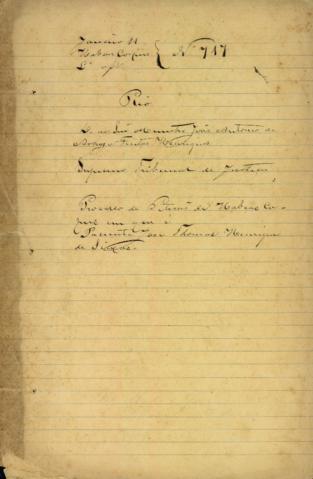 Janeiro 11
Habeas Corpus Nº 717
Rio
D. ao Snr Ministro João Antonio de
Araujo Freitas Henriques
Supremo Tribunal de Justiça
Processo de Petição de Habeas Co-
pus em que é
Paciente José Thomas Henrique
de